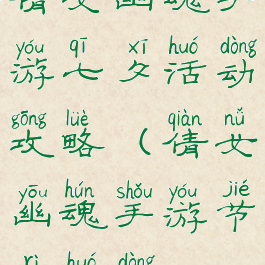 倩女幽魂手
yóu qī xī huó dòng
游七夕活动
gōng lüè qiàn nǚ
攻略（倩女
yōu hún shǒu yóu jié
幽魂手游节
rì huó dòng